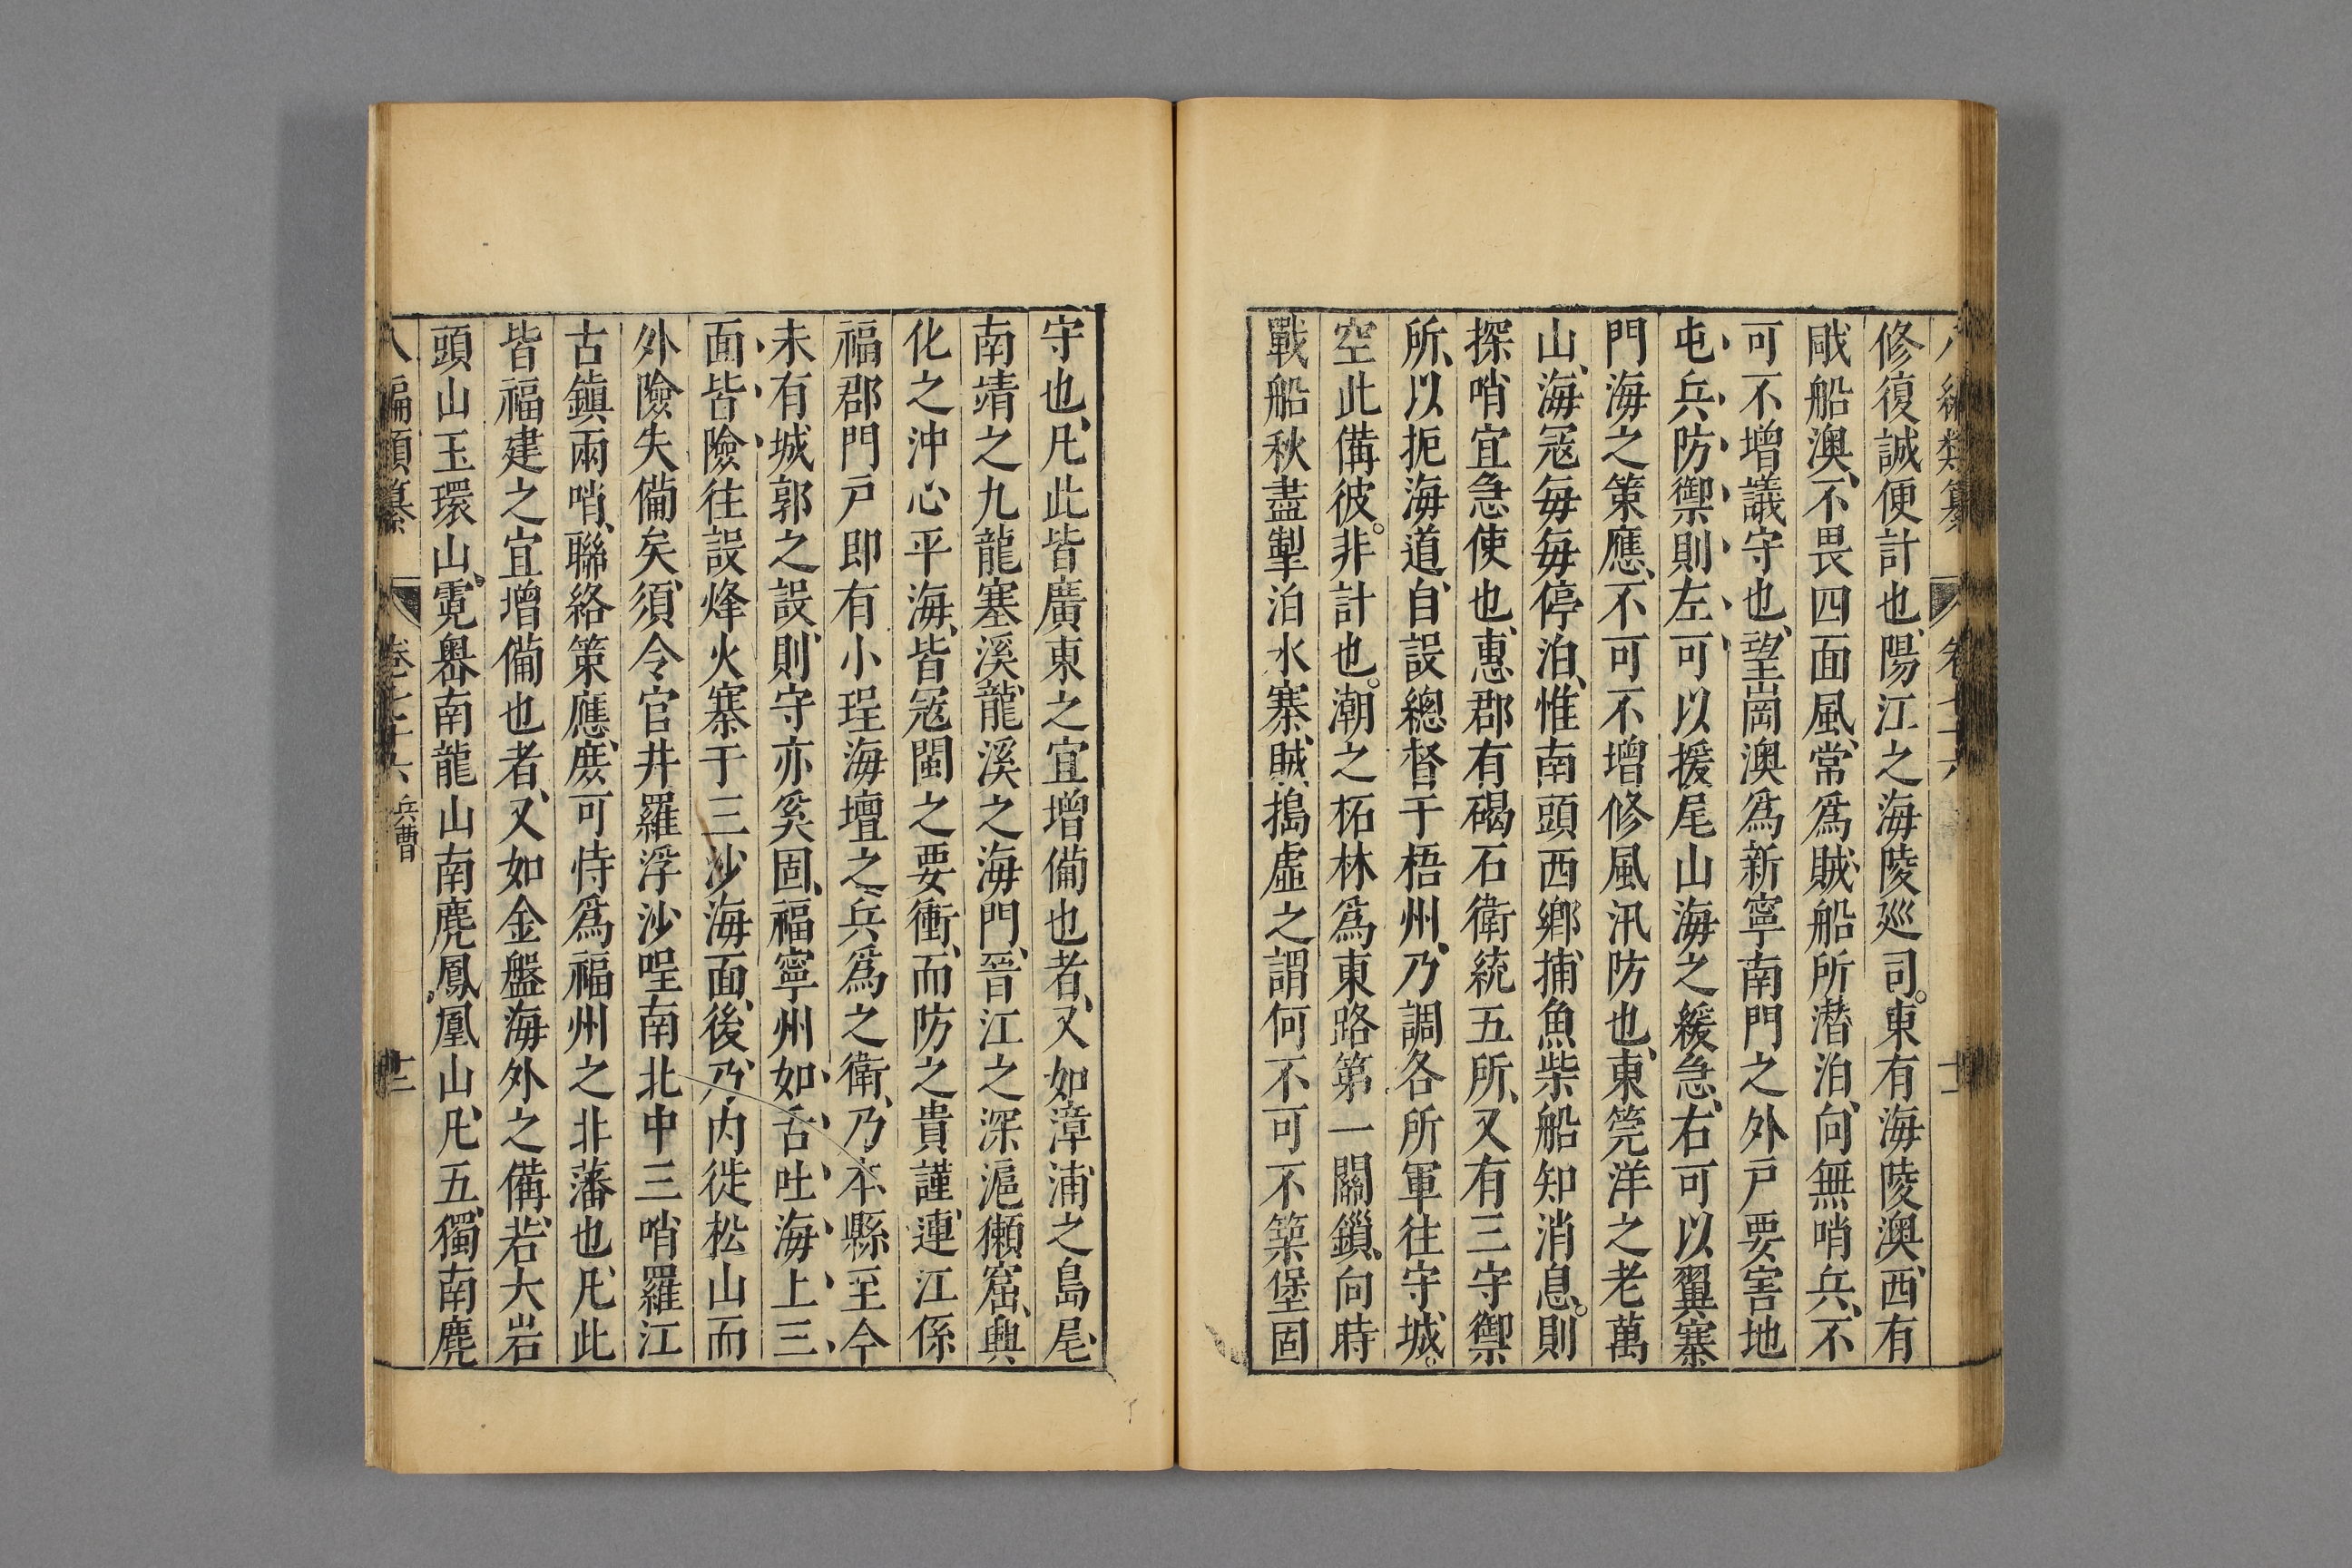 修復誠便計也、陽江之海陵巡司。東有海陵澳、西有
戙船澳、不畏四面風、常爲賊船所潜泊、向無哨兵、不
可不增議守也、望崗澳爲新寧南門之外戸要害地
屯兵防禦則左可以援尾山海之緩急、右可以翼寨
門海之策應、不可不增修風汛防也、東筦洋之老萬
山、海冦每每停泊、惟南頭西鄉捕魚柴船知消息。則
探哨宜急使也、惠郡有碣石衛統五所、又有三守禦
所、以扼海道、自設總督于梧州、乃調各所軍往守城。
空此備彼。非計也。潮之柘林爲東路第一關鎻、向時
戰船秋盡掣泊水寨、賊搗虛之謂何不可不築堡固
守也、凡此皆廣東之宜增備也者、又如漳浦之島尾、
南靖之九龍塞溪、龍溪之海門、晉江之深滬獺窟、興
化之沖心平海、皆冦閩之要衝、而防之貴謹、連江係
福郡門戸即有小埕海壇之兵爲之衛、乃本縣至今
未有城郭之設、則守亦奚固、福寧州如舌吐海上三
面皆險往設烽火寨于三沙海面、後乃内徙松山而
外險失備矣、須令官井羅浮沙埕南北中三哨羅江
古鎮兩哨、聯絡策應、庶可恃爲福州之非藩也、凡此
皆福建之宜增備也者、又如金盤海外之備、若大岩
頭山玉環山、霓嶴南龍山南麂鳳凰山、凡五、獨南麂
編類纂 卷七十六 兵曹 十二